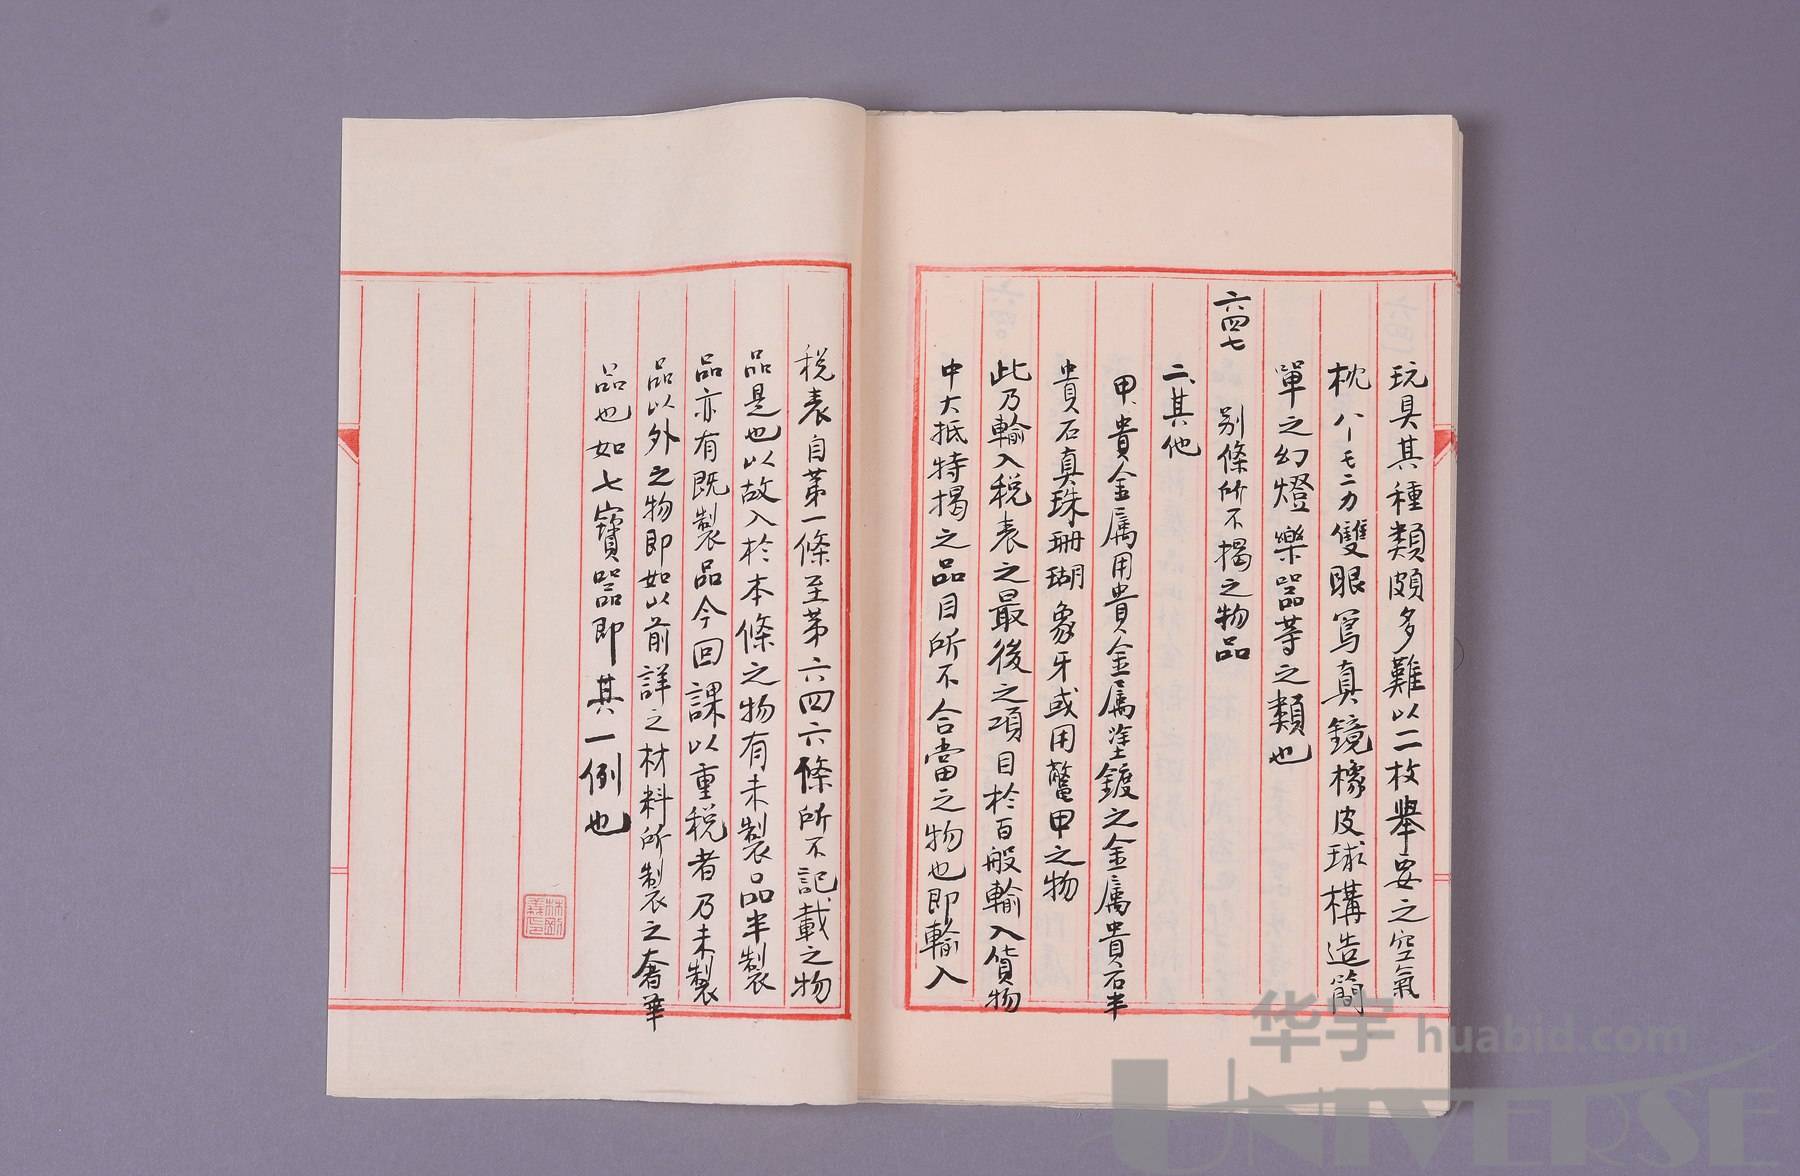 玩具其種類頗多難以二枚舉要之空氣
枕八ーモニカ雙眼寫真鏡橡皮球構造簡
單之幻燈樂器等之類也
六四七 別條所不揭之物品
二、其他
甲、貴金属用貴金属塗鍍之金属貴石半
貴石真珠珊瑚象牙或用鼈甲之物
此乃輸入税表之最後之項目於百般輸入貨物
中大抵特揭之品目所不合當之物也即輸入
税表自第一條至第六四六條所不記載之物
品是也以故入於本條之物有未製品半製
品亦有既製品今回課以重税者乃未製
品以外之物即如以前詳之材料所製之奢華
品也如七寶器即其一例也
林剛
義印
华宇 huabid.com
UNIVERSE